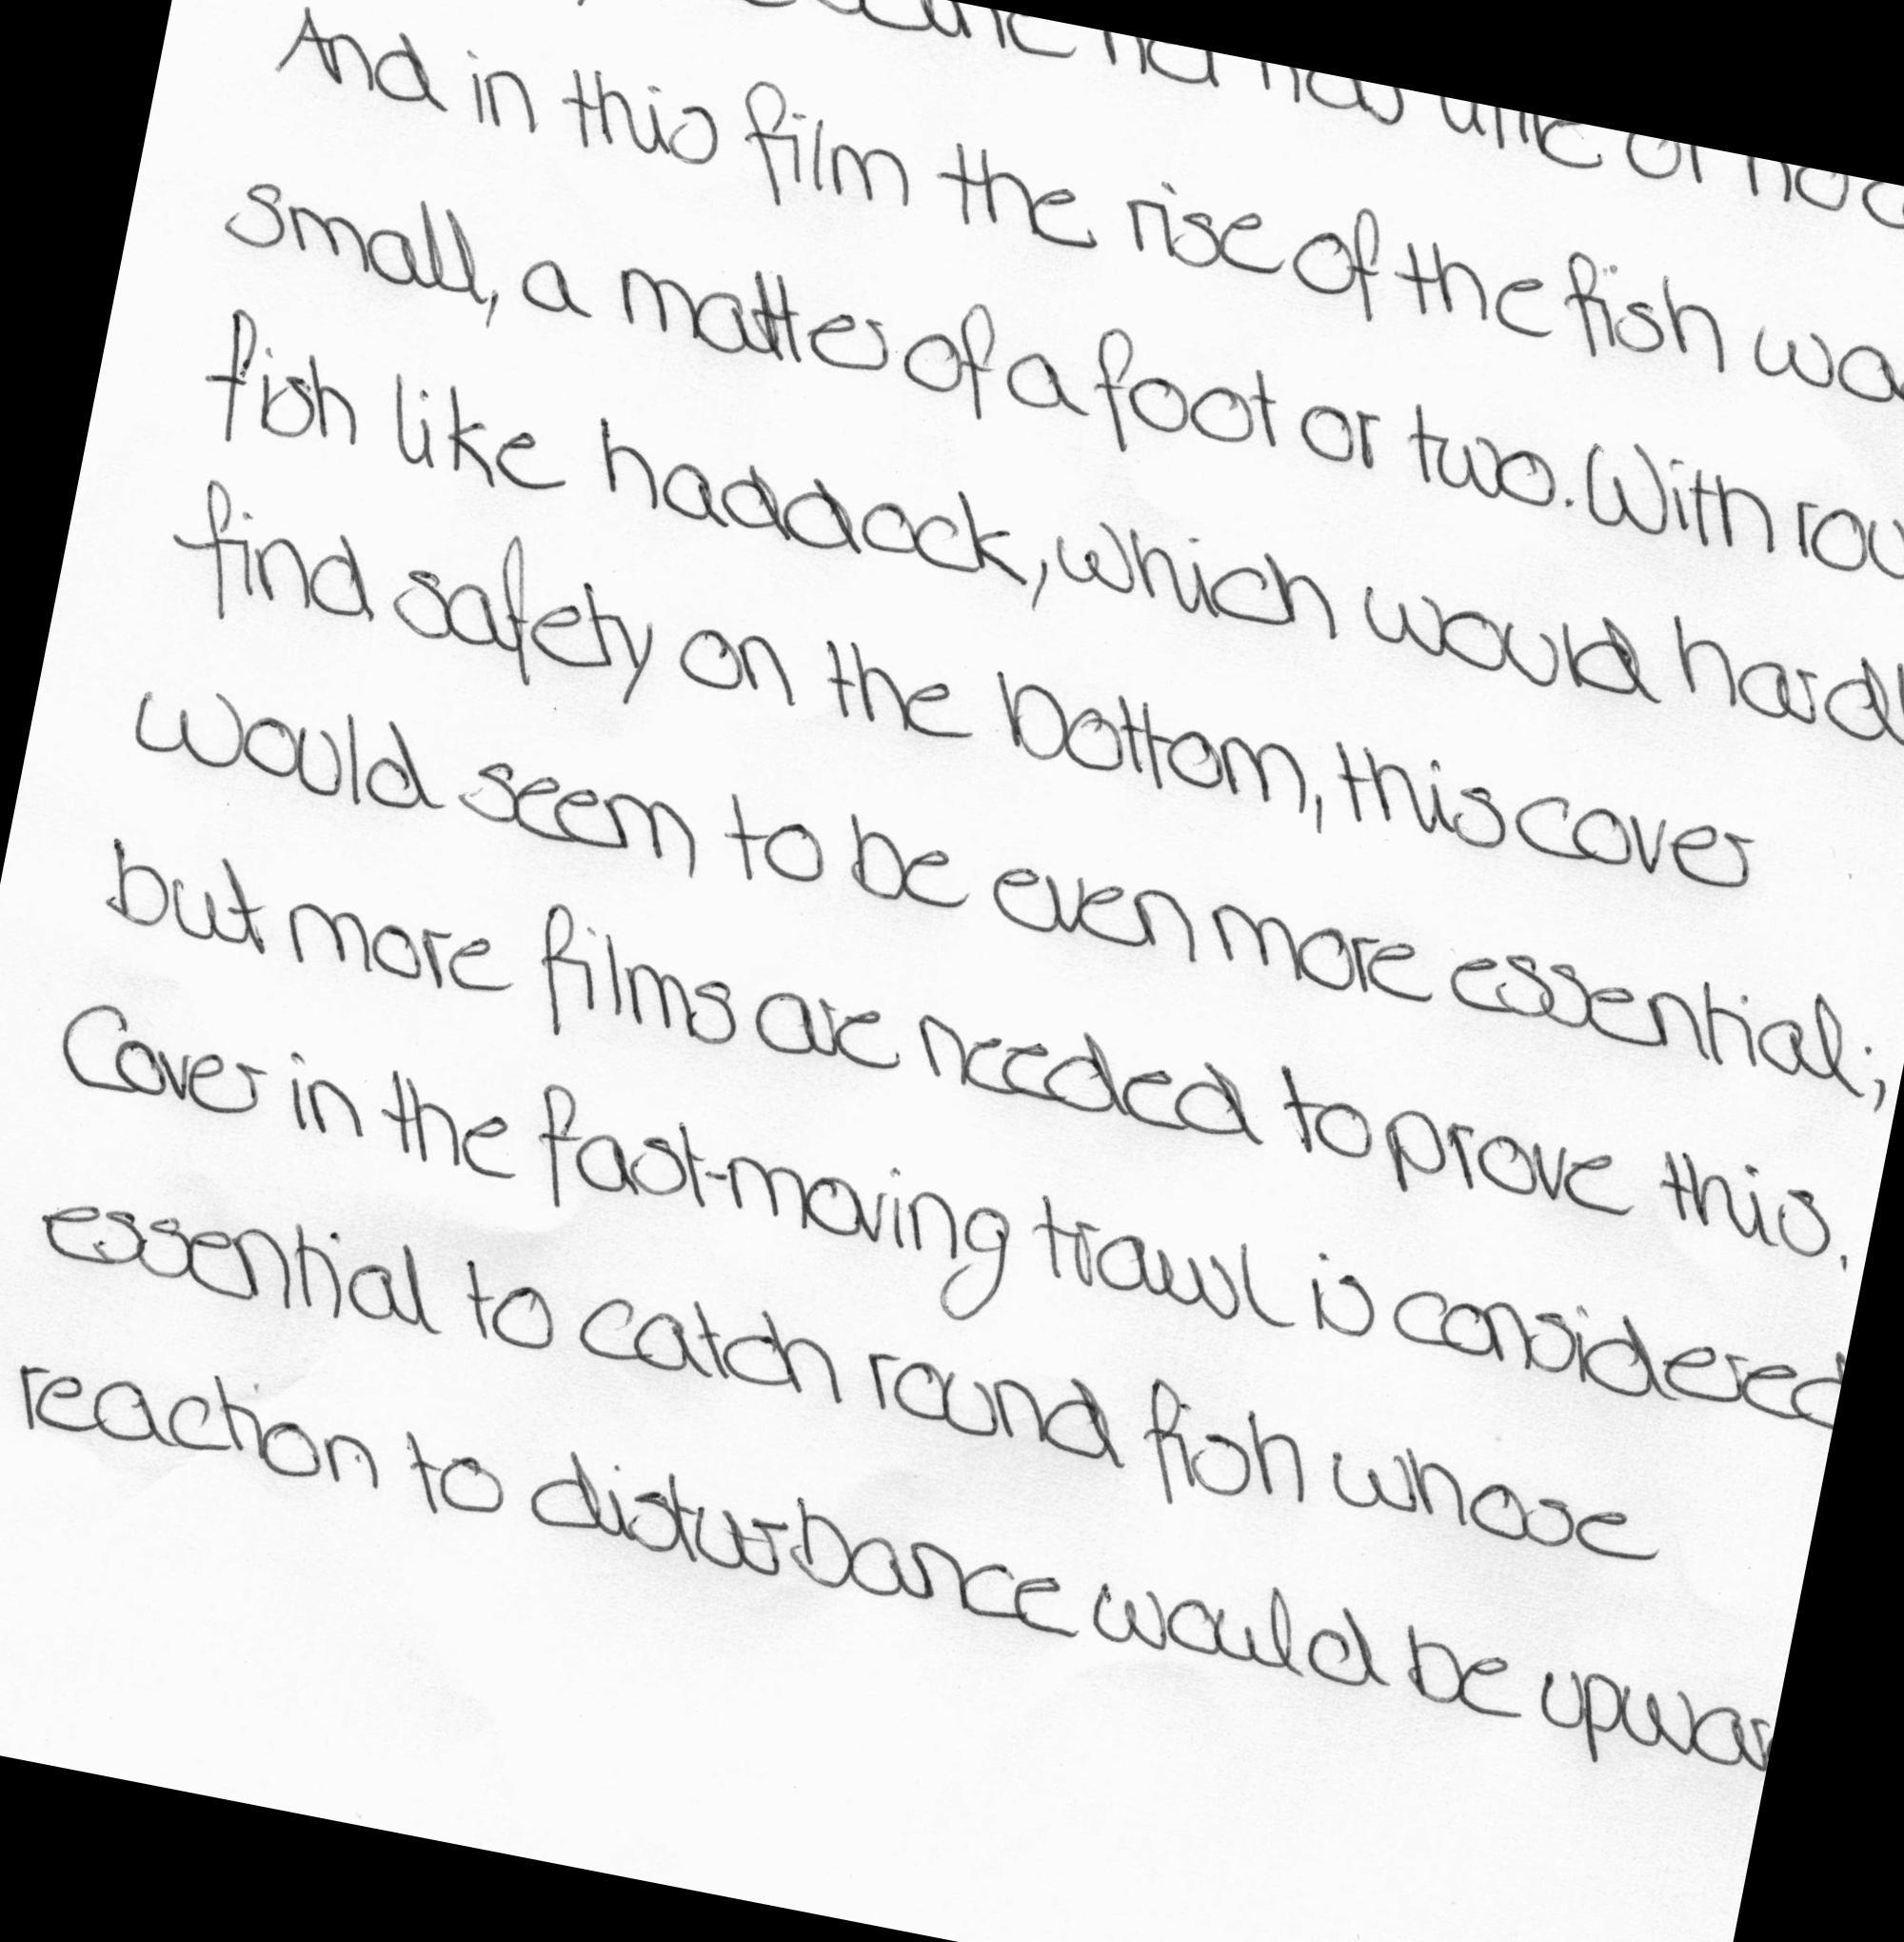 And in this film the rise of the fish
small, a matter of a foot or two. With
fish like haddock, which would
find safety on the bottom, this cover
would seem to be even more essential;
but more films are needed to prove this.
Cover in the fast-moving trawl is considered
essential to catch round fish whose
reaction to disturbance would be